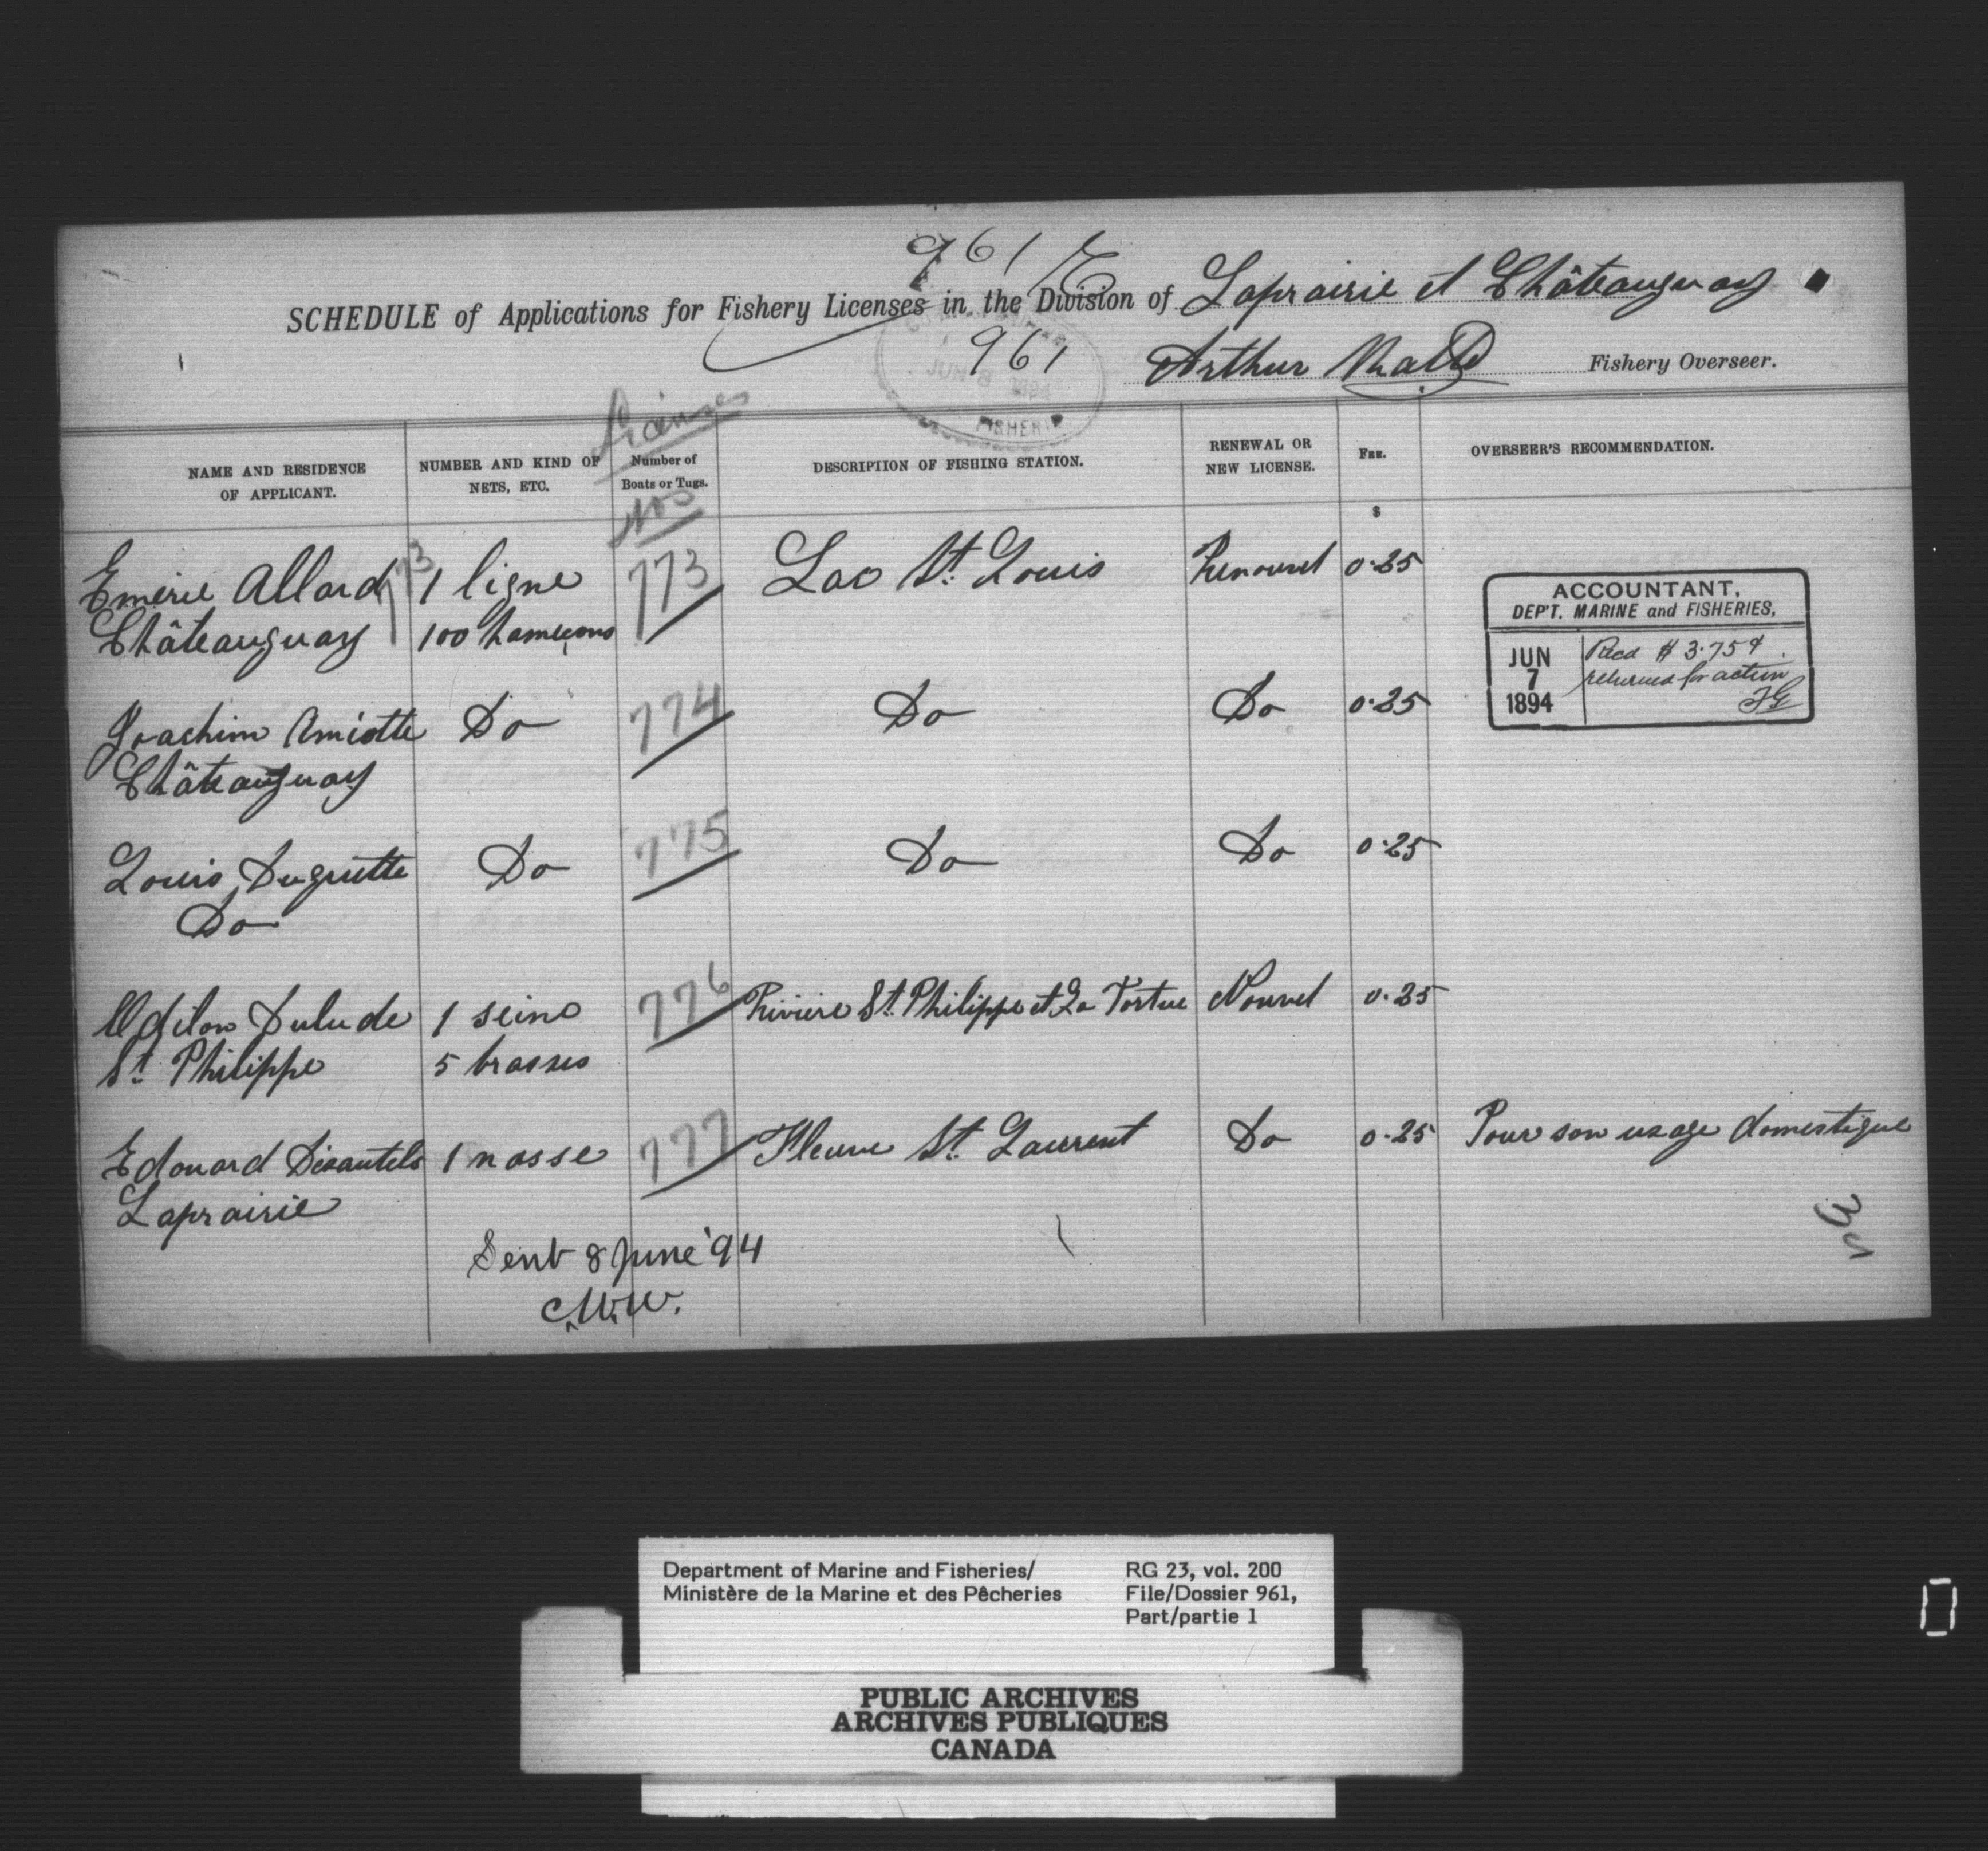 961
SCHEDULE of Applications for Fishery Licenses in the Division of Laprairie et Châteauguay
961
JUN 8 1894
FISHERIES
Arthur Fishery Overseer.
Licenses
Nos
NAME AND RESIDENCE OF APPLICANT.
NUMBER AND KIND OF NETS, ETC.
Number of Boats or Tugs.
DESCRIPTION OF FISHING STATION.
RENEWAL OR NEW LICENSE.
FEE.
OVERSEER'S RECOMMENDATION.
$
Emerie Allard 1 ligne 773 Lac St. Louis Renouvel 0.25
Châteauguay 100 hameçons
ACCOUNTANT,
DEP'T. MARINE and FISHERIES,
JUN 7 1894
Recd $3.75¢
returned for action
Joachim Amiotte Do 774 Do Do 0.25
Châteauguay
Louis Duquette Do 775 Do Do 0.25
Do
Odilon Dulude 1 seine 776 Rivière St. Philippe et La Tortue Nouvel 0.25
St. Philippe 5 brasses
Edouard Désautels 1 nasse 777 Fleuve St. Laurent Do 0.25 Pour son usage domestique
Laprairie
Sent 8 June '94
C.W.W.
Department of Marine and Fisheries/
Ministère de la Marine et des Pêcheries
RG 23, vol. 200
File/Dossier 961,
Part/partie 1
PUBLIC ARCHIVES
ARCHIVES PUBLIQUES
CANADA